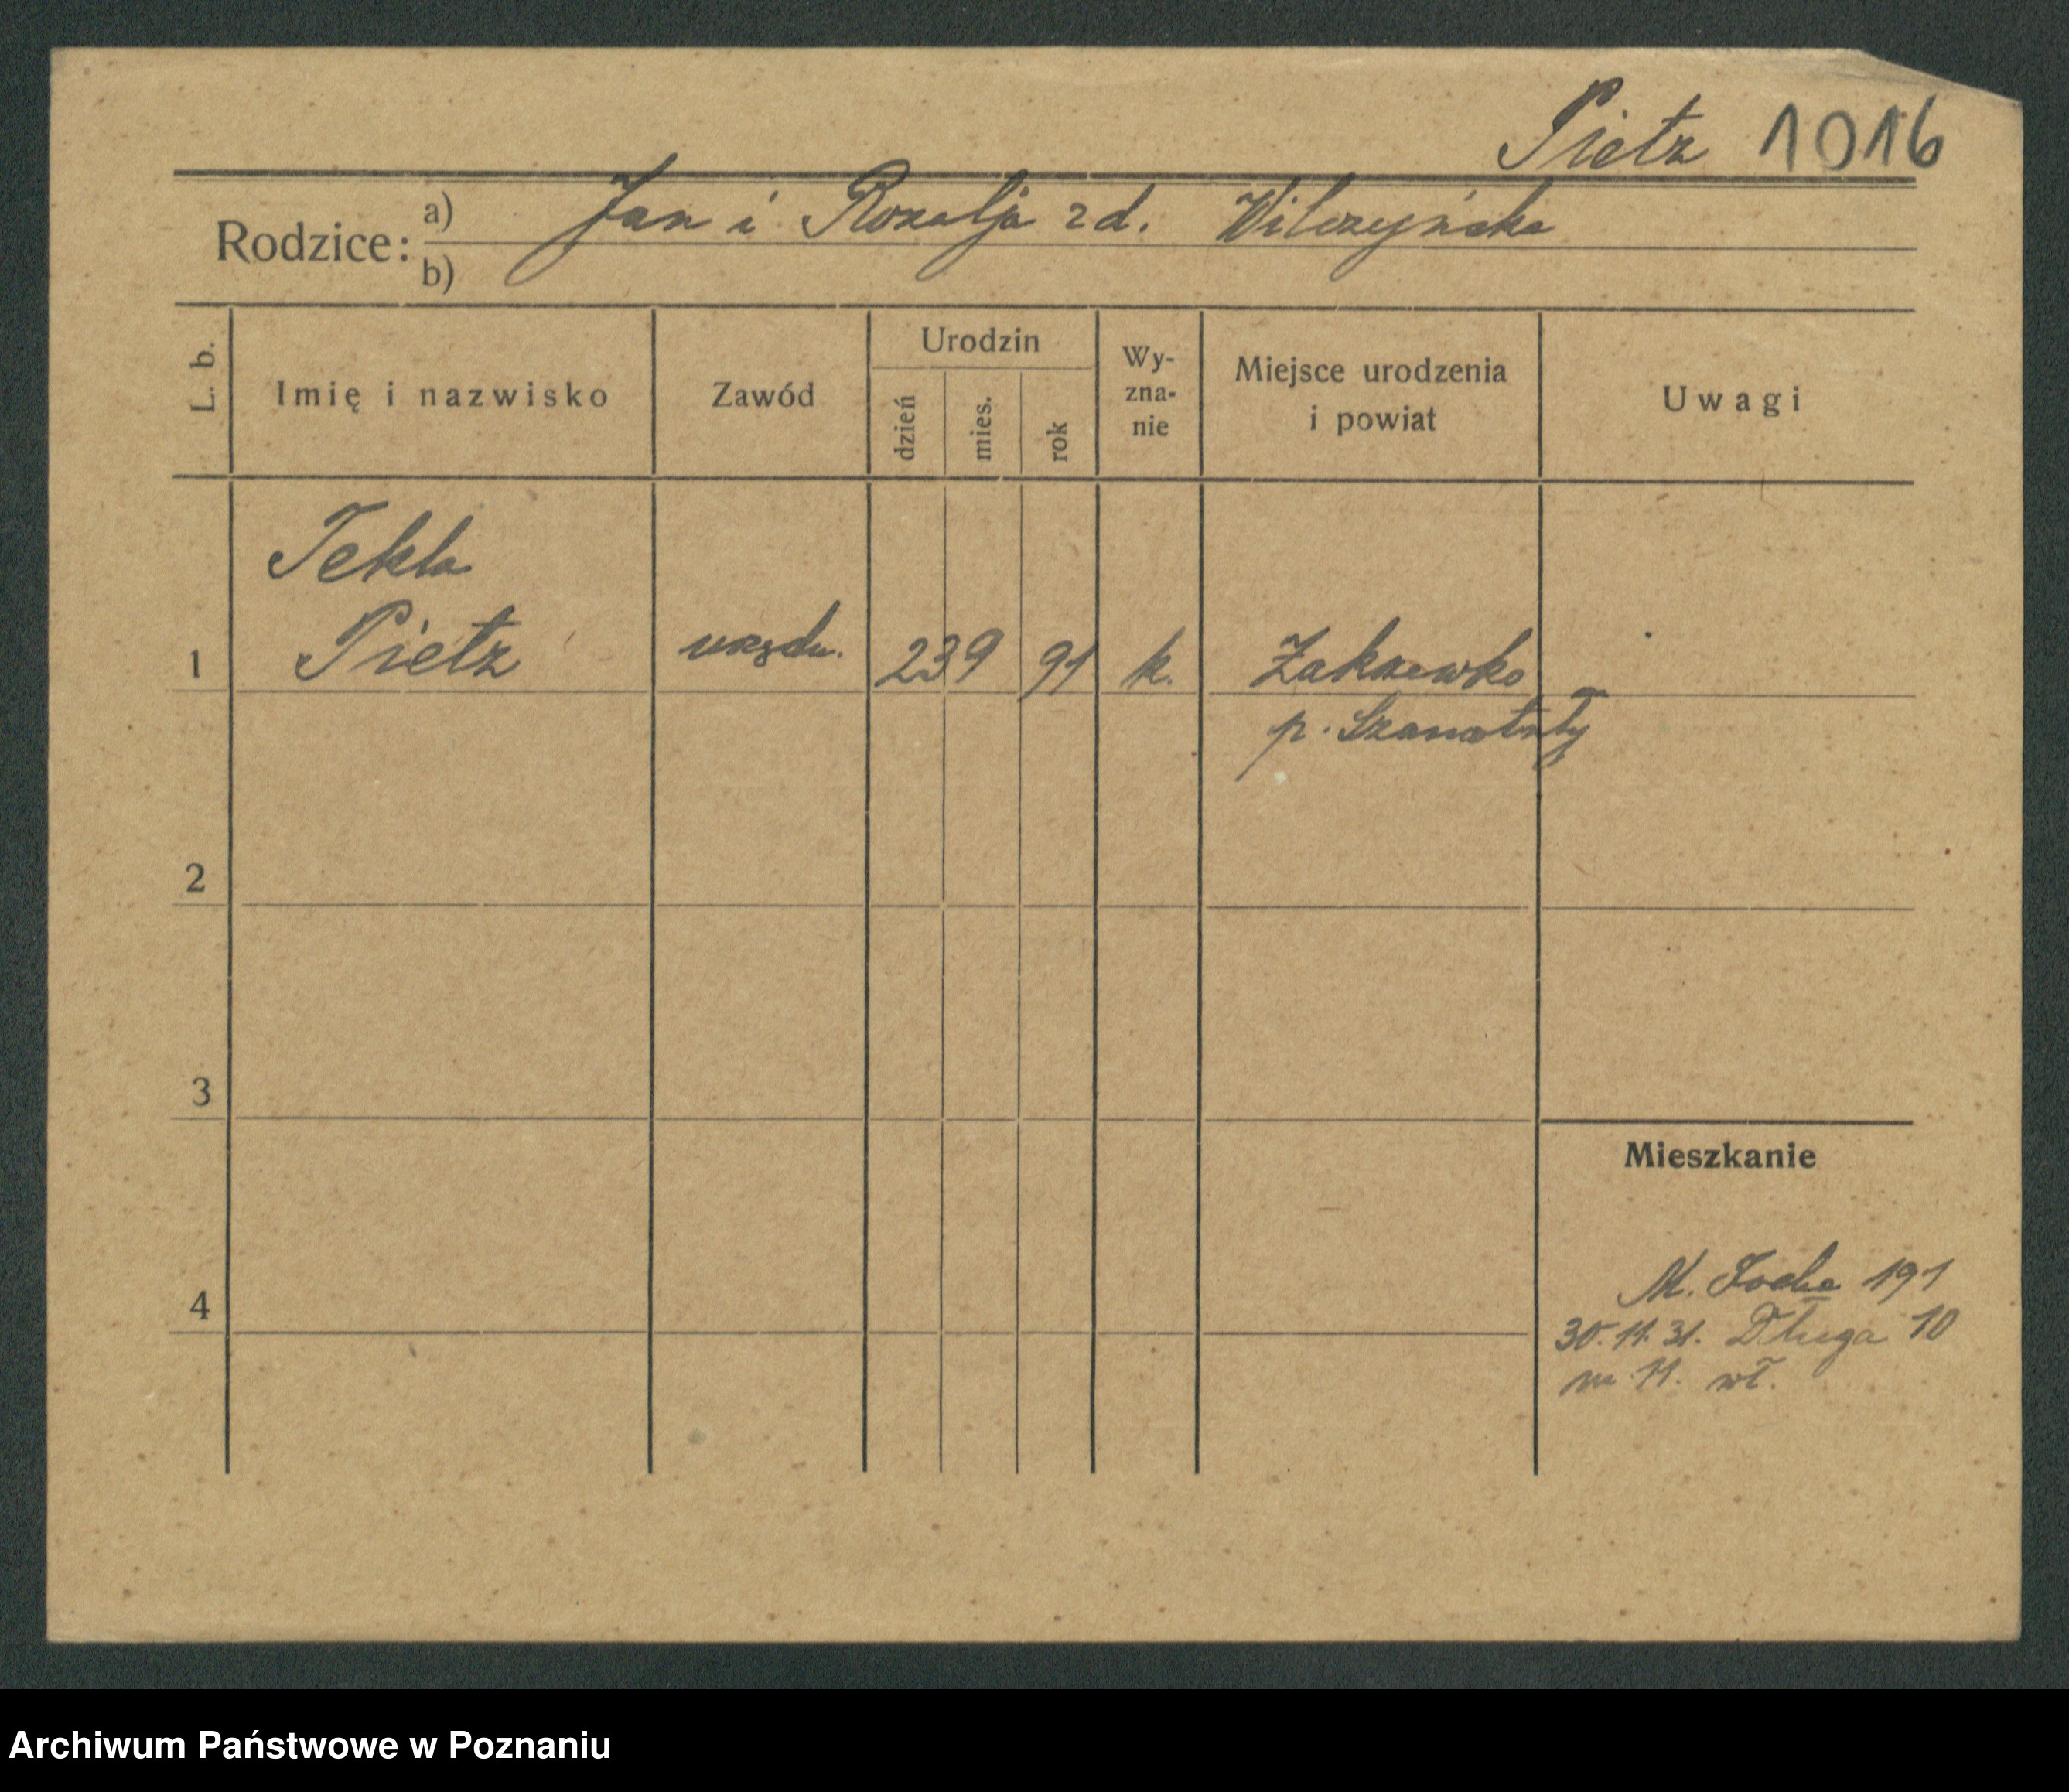 Pietz 1016
Rodzice: a) Jan i Rozalja zd. Wilczyńska
b)
L. b. Imię i nazwisko Zawód Urodzin dzień mies. rok Wy-zna-nie Miejsce urodzenia i powiat Uwagi
Tekla
1 Pietz urzędn. 23 9 91 k. Zakrzewko
p. Szamotuły
2
3
Mieszkanie
M. Focha 191
4
30.11.31. Długa 10
m 11. wł.
Archiwum Państwowe w Poznaniu